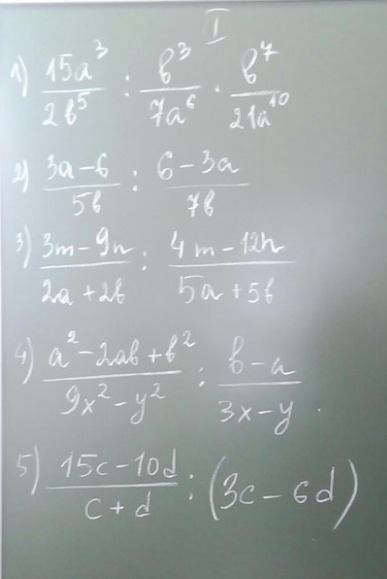 I
1) \frac{15a^3}{2b^5} : \frac{b^3}{7a^6} \cdot \frac{b^7}{21a^{10}}
2) \frac{3a-6}{5b} : \frac{6-3a}{7b}
3) \frac{3m-9n}{2a+2b} : \frac{4m-12n}{5a+5b}
4) \frac{a^2-2ab+b^2}{9x^2-y^2} : \frac{b-a}{3x-y}.
5) \frac{15c-10d}{c+d} : (3c-6d)